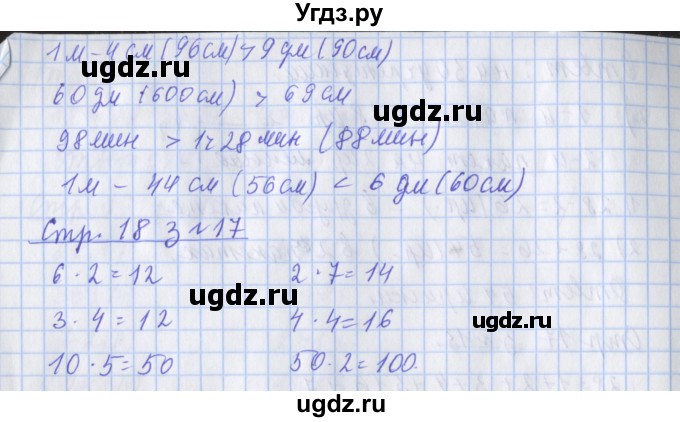 Угдз.ру
1 м - 4 см (96 см) > 9 дм (90 см)
ugdz.ru
60 дм (600 см) > 69 см
ugdz.ru
98 мин > 1ч 28 мин (88 мин)
1 м - 44 см (56 см) < 6 дм (60 см)
Стр. 18 з №17
ugdz.ru
6 · 2 = 12 2 · 7 = 14
ugdz.ru
3 · 4 = 12 4 · 4 = 16
ugdz.ru
10 · 5 = 50 50 · 2 = 100.
ugdz.ru